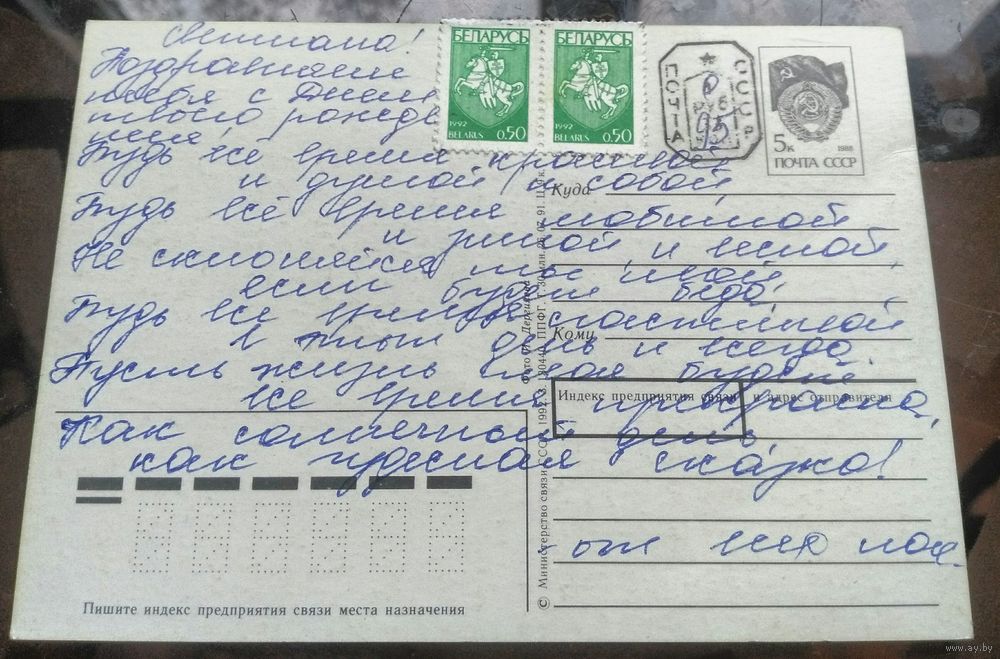 Светлана!
Поздравляем
тебя с Днем
твоего рожде
ния
Будь всё время красивой
и душой и собой
Будь всё время любимой
и зимой и весной,
Не склоняйся ты ивой
если будет беда,
Будь всё время счастливой
в этот день и всегда.
Пусть жизнь твоя будет
все время прекрасна,
Как солнечный день,
как чудесная сказка!
БЕЛАРУСЬ
1992
BELARUS 0,50
БЕЛАРУСЬ
1992
BELARUS 0,50
ПОЧТА СССР
РУБ
95
5к 1988
ПОЧТА СССР
Куда
Кому
Индекс предприятия связи и адрес отправителя
© Министерство связи СССР, 1992. З. 180440. ППФГ.
Фото И. Дергилёва
Пишите индекс предприятия связи места назначения
www.ay.by